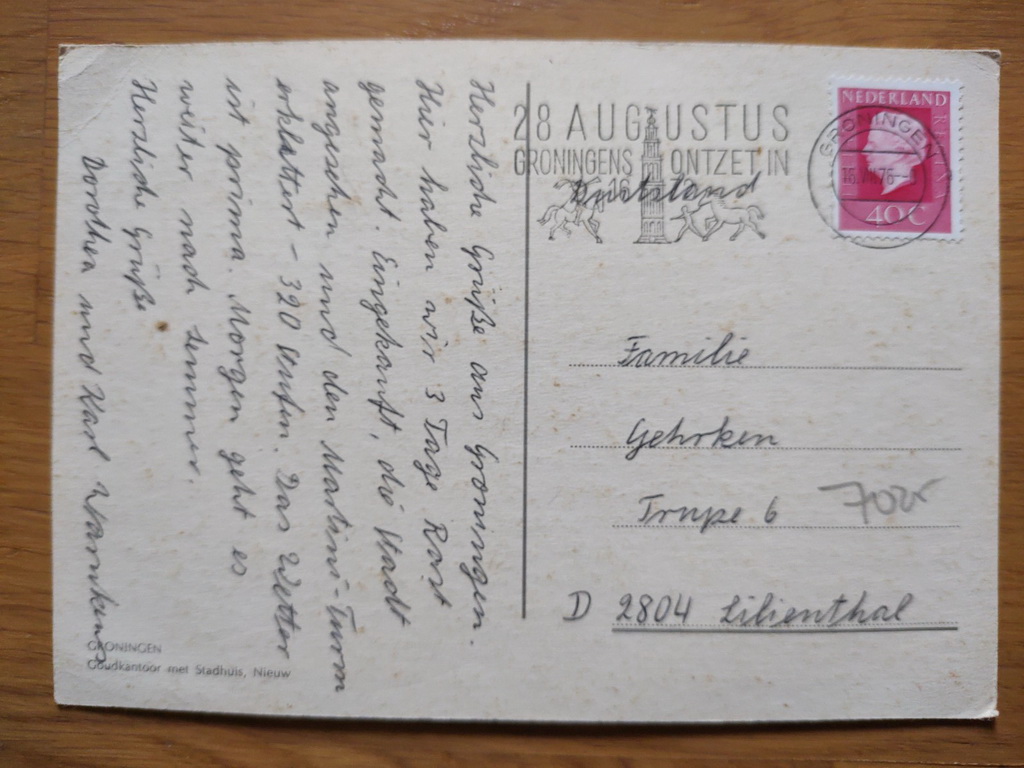 Herzliche Grüße aus Groningen.
Hier haben wir 3 Tage Rast
gemacht. Eingekauft, die Stadt
angesehen und den Martini-Turm
erklettert - 320 Stufen. Das Wetter
ist prima. Morgen geht es
weiter nach
Herzliche Grüße
Dorothea und Karl Warnkens
GRONINGEN
Goudkantoor met Stadhuis, Nieuw
28 AUGUSTUS
GRONINGENS ONTZET IN
NEDERLAND
40 C
GRONINGEN
Familie
Gehrken
Trupe 6
D 2804 Lilienthal